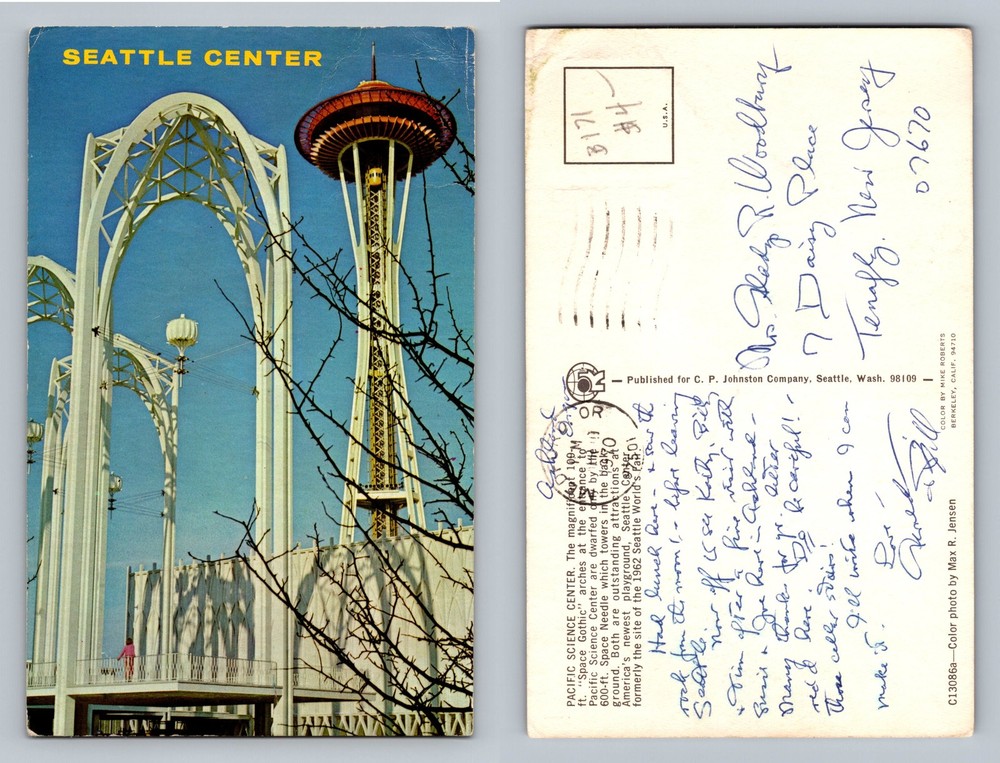 SEATTLE CENTER
B171
#4-
U.S.A.
R. Woodbury
7 Daisy Place
Tenafly, New Jersey
07670
Published for C. P. Johnston Company, Seattle, Wash. 98109
COLOR BY MIKE ROBERTS
BERKELEY, CALIF. 94710
OR
PACIFIC SCIENCE CENTER. The magnificent 100-
ft. "Space Gothic" arches at the entrance to
Pacific Science Center are dwarfed only by the
600-ft. Space Needle which towers in the back-
ground. Both are outstanding attractions at
America's newest playground, Seattle Center,
formerly the site of the 1962 Seattle World's Fair.
Had lunch here - & saw the
rock from the moon, - before leaving
Seattle.
Now off to see Kathy, Bill
& Tim after a fine visit with
& Joe here in Ashland -
Many thanks for yr. letter
rec'd here. Do be careful! -
Those cellar stairs!
I'll write when I can
make it.
Love -
& Bill
C13086a—Color photo by Max R. Jensen